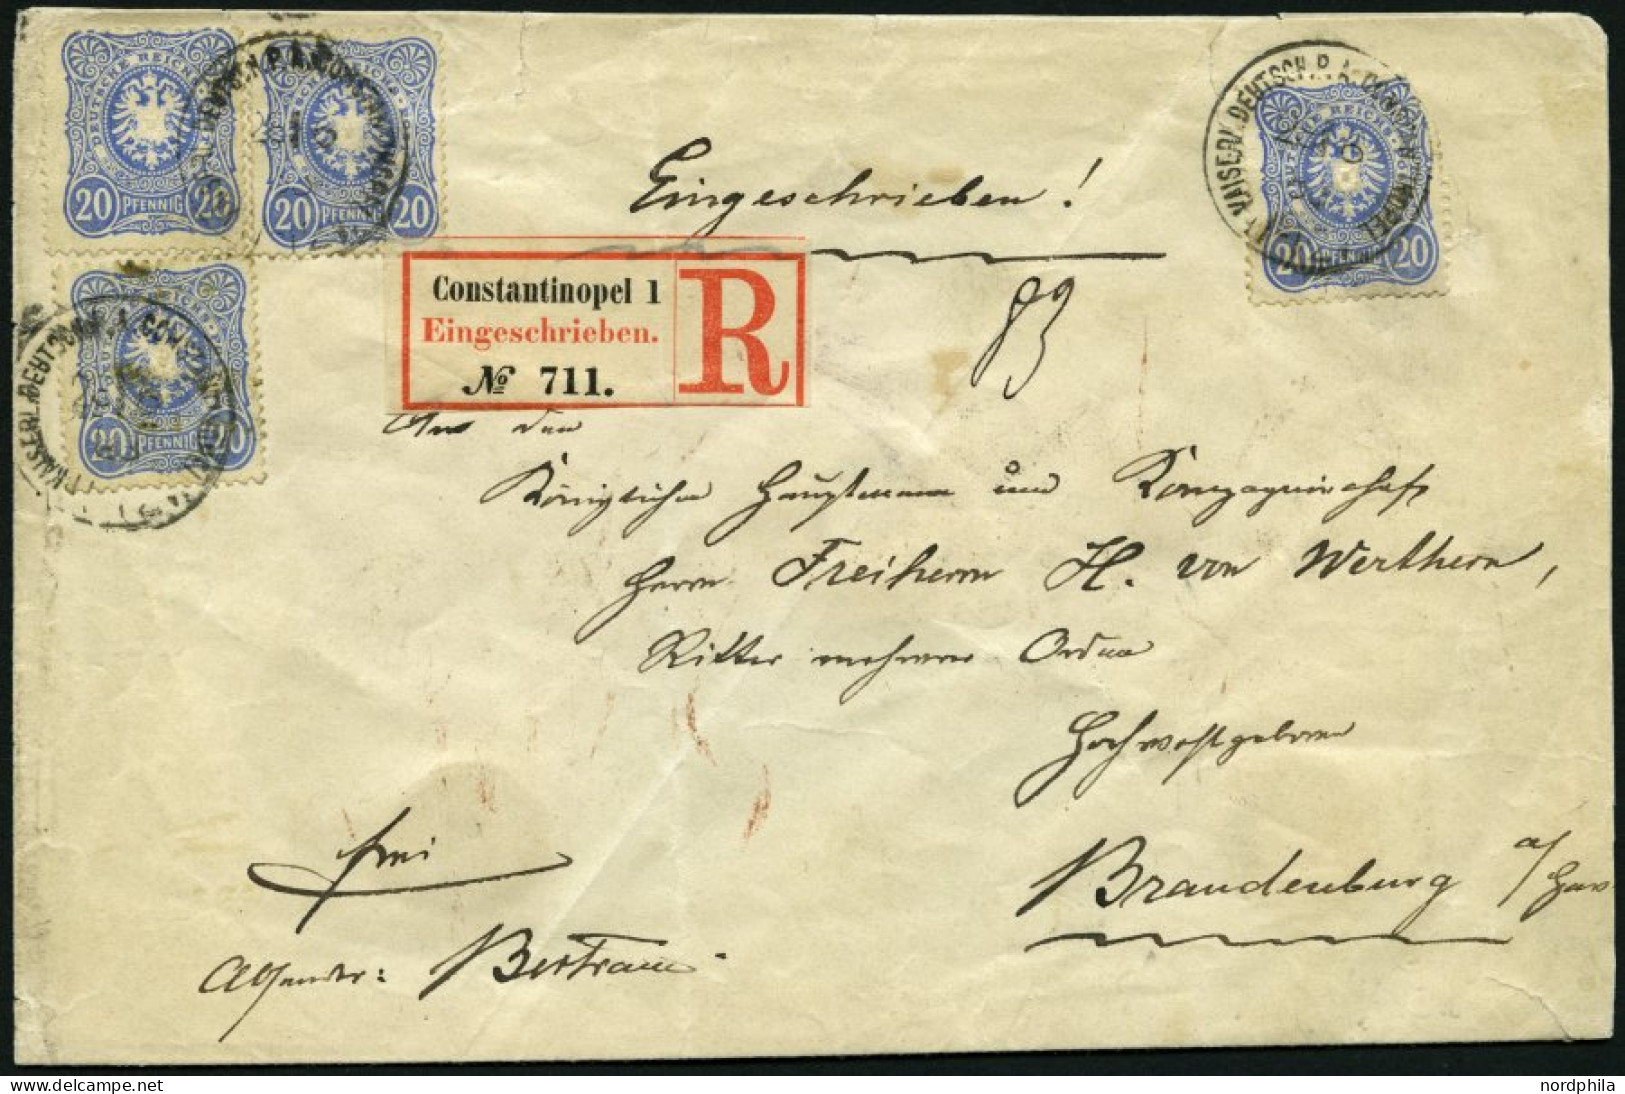 DEUTSCHE REICHS-POST
20 PFENNIG 20
DEUTSCHE REICHS-POST
20 PFENNIG 20
20 PFENNIG 20
20 PFENNIG 20
KAISERL. DEUTSCH. P. A. CONSTANTINOPEL
Eingeschrieben!
Constantinopel 1
Eingeschrieben.
№ 711.
R
83
An den
Königlichen Hauptmann und Kompagniechef
Herrn Freiherrn H. von Werthern,
Ritter mehrerer Orden
Hochwohlgeboren
frei
Brandenburg a/Hav
Absender: Bertram.
nordphila